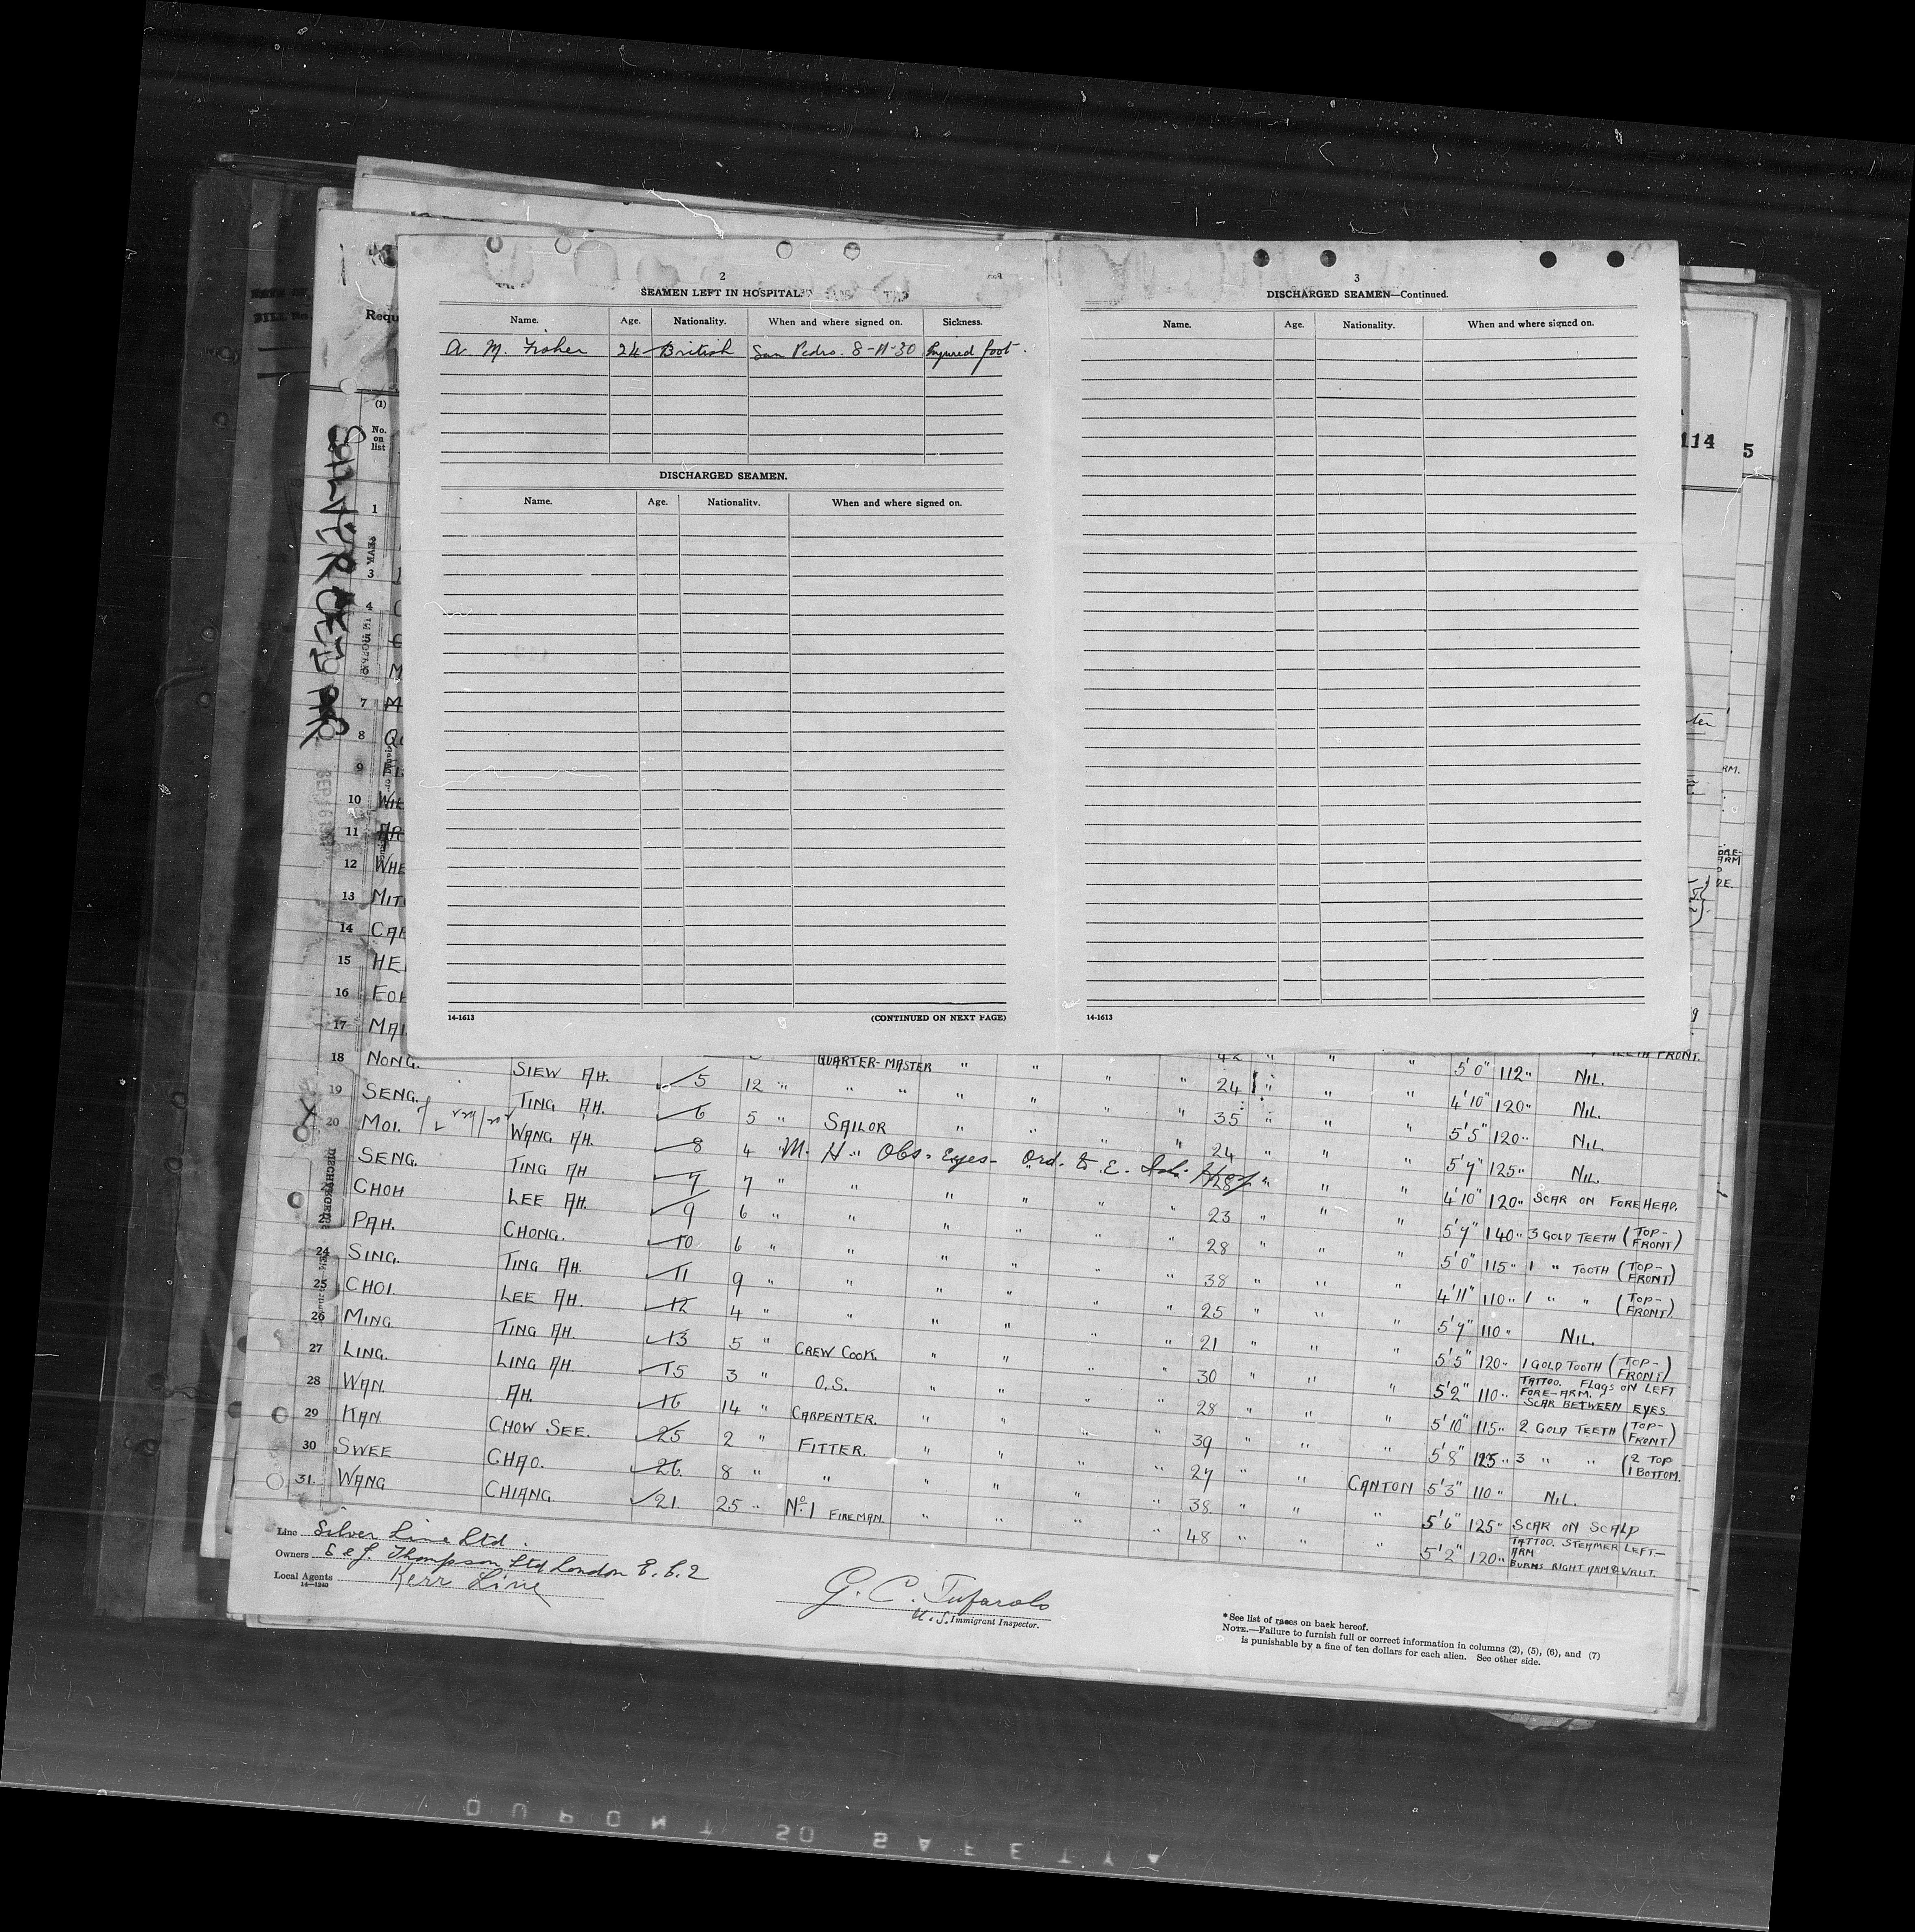 2
SEAMEN LEFT IN HOSPITAL
Name. Age. Nationality. When and where signed on. Sickness.
A. M. Fisher 24 British San Pedro. 8-11-30 Injured foot.
DISCHARGED SEAMEN.
Name. Age. Nationality. When and where signed on.
14-1613 (CONTINUED ON NEXT PAGE)
3
DISCHARGED SEAMEN—Continued.
Name. Age. Nationality. When and where signed on.
14-1613
Requ
114
5
(1)
No. on list
1
3
4
7
8
9
10
11
12 WHE
13 MIT
14 CAR
15 HE
16
17 MAI
TEETH FRONT.
18 NONG. SIEW AH. 5 12 " QUARTER-MASTER " " " " 24 " " " 5'0" 112" NIL.
19 SENG. TING AH. 6 5 " " " " " " " 35 " " " 4'10" 120" NIL.
20 MOI. WANG AH. 8 4 " SAILOR " " " " 24 " " " 5'5" 120" NIL.
SENG. TING AH 7 7 " M. H. Obs. Eyes - Ord. to E. Isl. Hosp 28 " " " 5'7" 125" NIL.
CHOH LEE AH. 9 6 " " " " " " 23 " " " 4'10" 120" SCAR ON FOREHEAD.
PAH. CHONG. 10 6 " " " " " " 28 " " " 5'7" 140" 3 GOLD TEETH (TOP-FRONT)
24 SING. TING AH. 11 9 " " " " " " 38 " " " 5'0" 115" 1 " TOOTH (TOP-FRONT)
25 CHOI. LEE AH. 12 4 " " " " " " 25 " " " 4'11" 110" 1 " " (TOP-FRONT).
26 MING. TING AH. 13 5 " " " " " " 21 " " " 5'7" 110" NIL.
27 LING. LING AH. 15 3 " CREW COOK. " " " " 30 " " " 5'5" 120" 1 GOLD TOOTH (TOP-FRONT)
28 WAN. AH. 16 14 " O.S. " " " " 28 " " " 5'2" 110" TATTOO. FLAGS ON LEFT FORE-ARM. SCAR BETWEEN EYES.
29 KAN. CHOW SEE. 25 2 " CARPENTER. " " " " 39 " " " 5'10" 115" 2 GOLD TEETH (TOP-FRONT)
30 SWEE CHAO. 26 8 " FITTER. " " " " 27 " " " 5'8" 125" 3 " " (2 TOP 1 BOTTOM.
31. WANG CHIANG. 21. 25 " " " " " " 38 " " CANTON 5'3" 110" NIL.
No. 1 FIREMAN. " " " " 48 " " " 5'6" 125" SCAR ON SCALP
5'2" 120" TATTOO. STEAMER LEFT-ARM BURNS RIGHT ARM & WRIST.
Line Silver Line Ltd.
Owners S & J. Thompson Ltd London E.C.2
Local Agents Kerr Line
14-1240
G. C. Tufarolo
U.S. Immigrant Inspector.
*See list of races on back hereof.
NOTE.—Failure to furnish full or correct information in columns (2), (5), (6), and (7)
is punishable by a fine of ten dollars for each alien. See other side.
DUPONT SO SAFETY